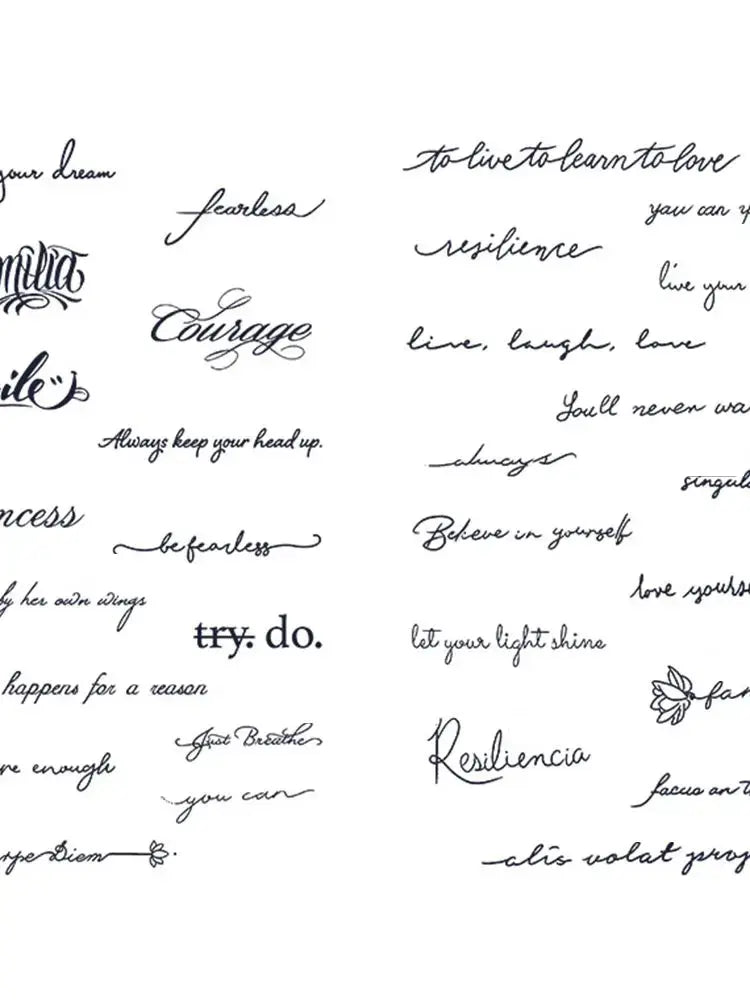 your dream
fearless
milia
Courage
ile
Always keep your head up.
ncess
be fearless
by her own wings
try. do.
happens for a reason
Just Breathe
re enough
you can
rpe Diem
to live to learn to love
you can y
resilience
live your
live, laugh, love
You'll never wa
always
singula
Believe in yourself
love yourse
let your light shine
fam
Resiliencia
focus on t
alis volat prop